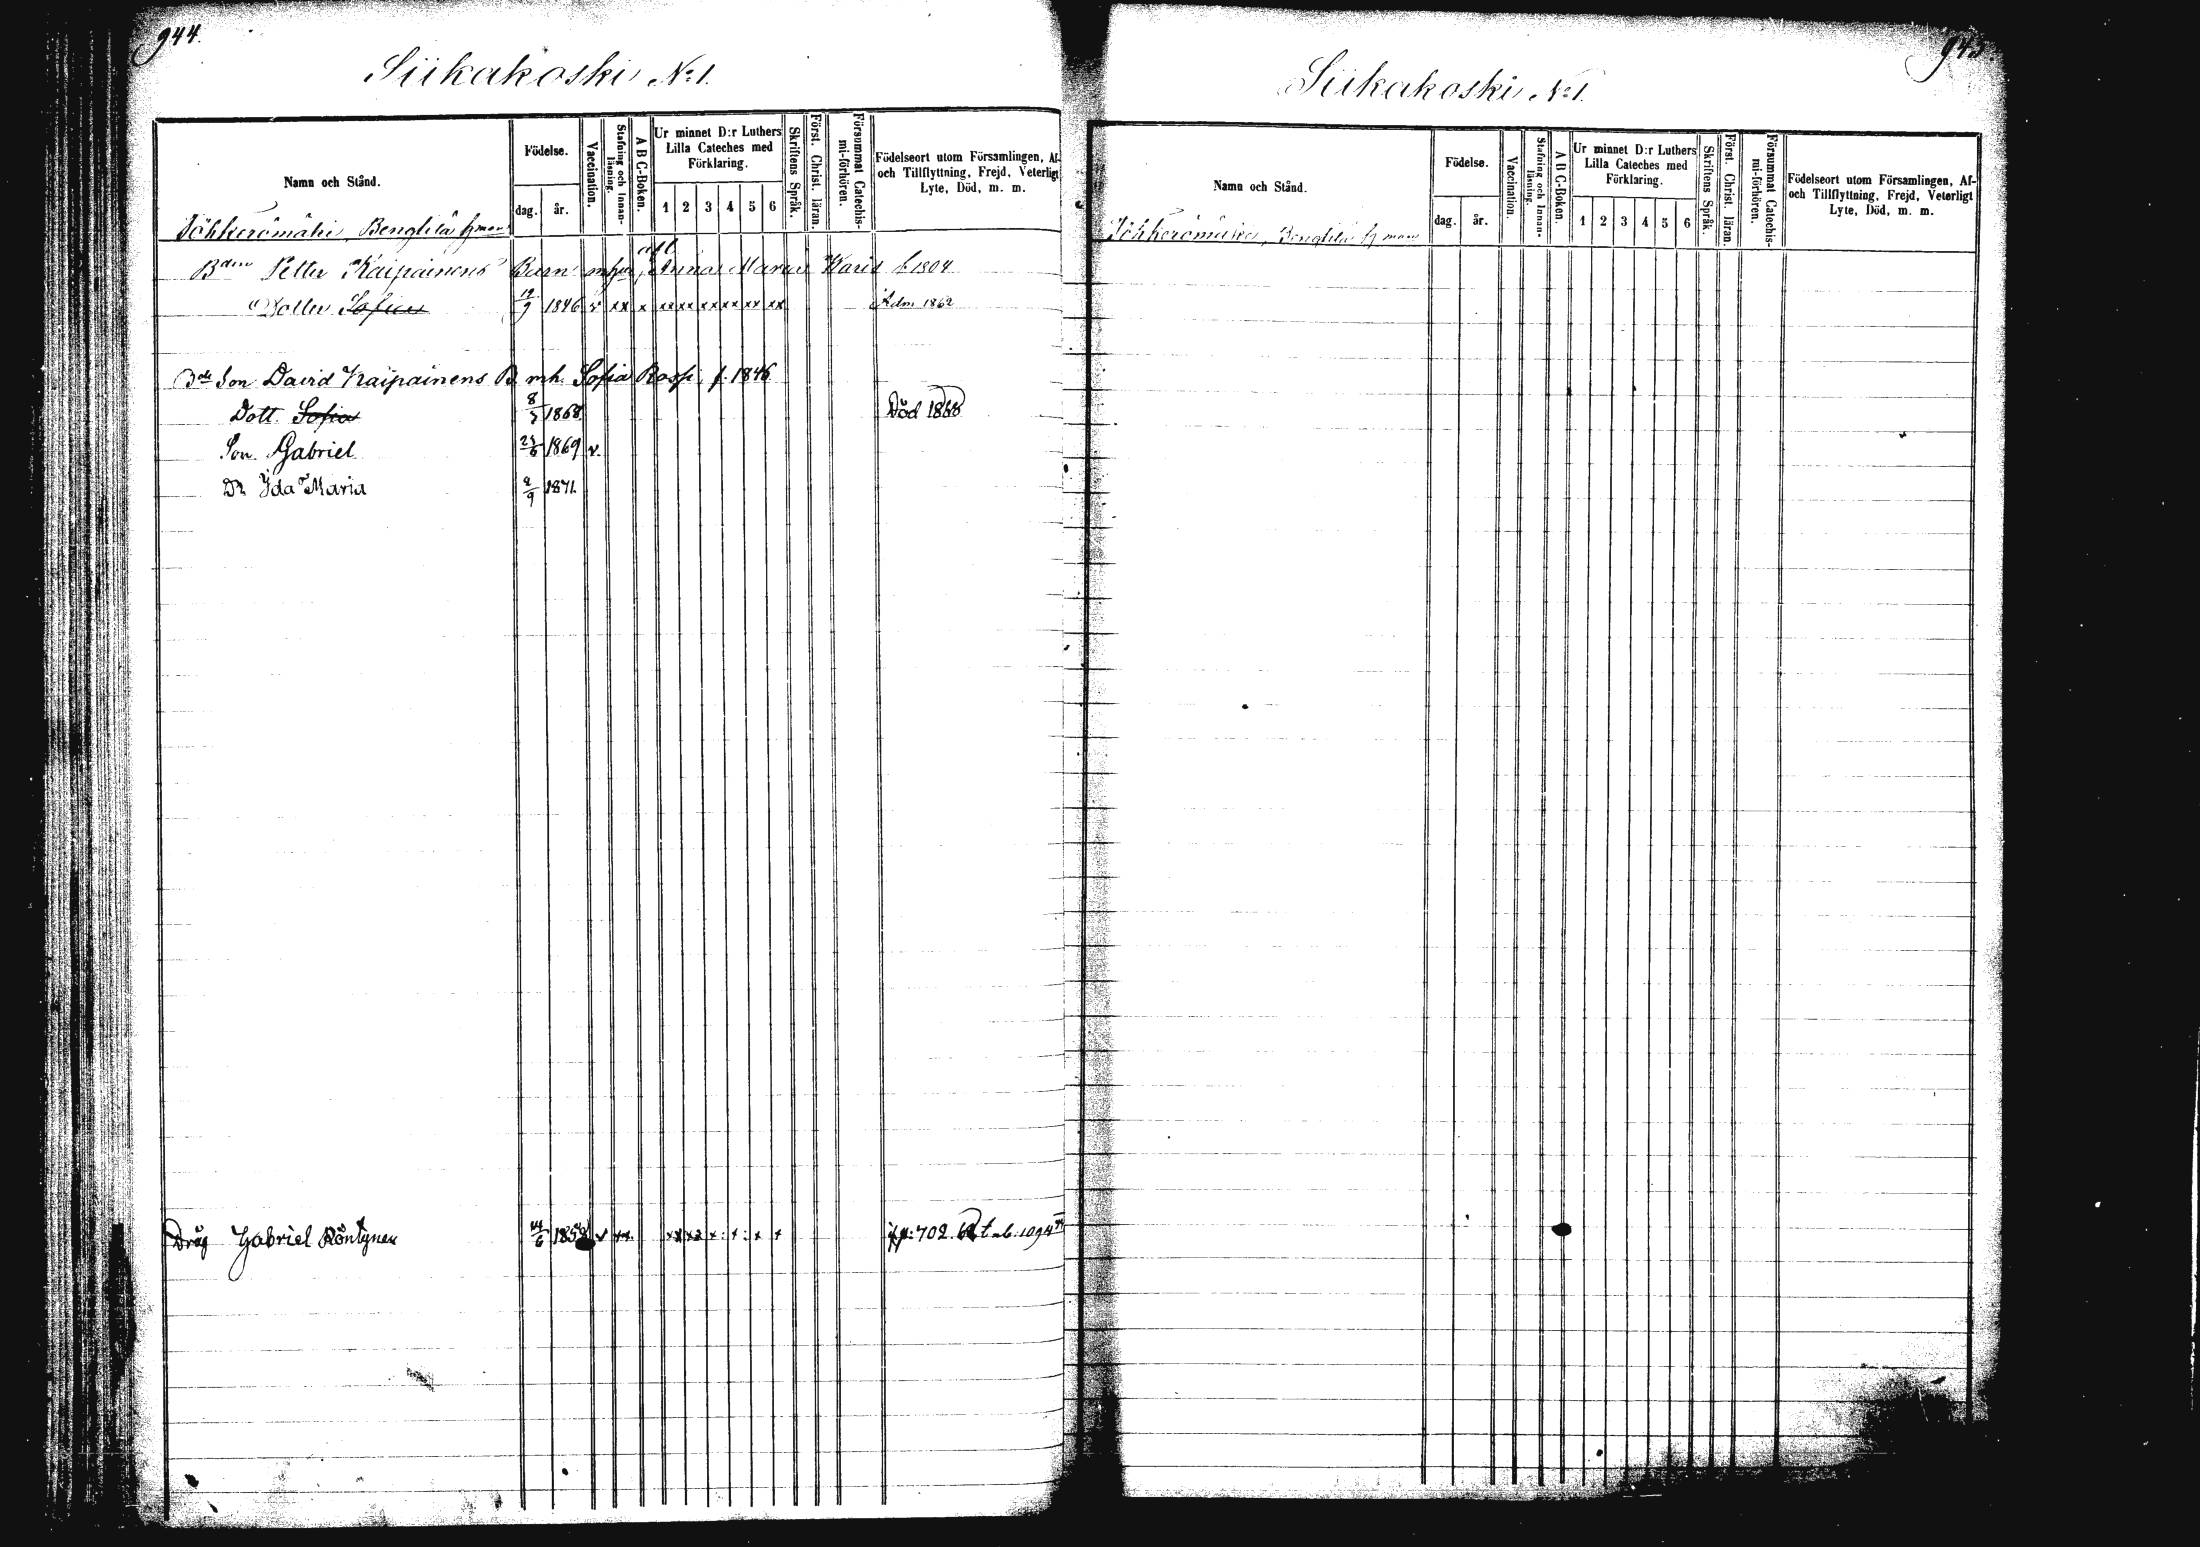 944.
Siikakoski No 1.
Namn och Stånd.
Födelse.
dag. år.
Vaccination.
Stafning och Innan-läsning.
A B C-Boken.
Ur minnet D:r Luthers Lilla Cateches med Förklaring.
1 2 3 4 5 6
Skriftens Språk.
Först. Christ. läran.
Försummat Catechis-mi-förhören.
Födelseort utom Församlingen, Af- och Tillflyttning, Frejd, Veterligt Lyte, Död, m. m.
Bengtilä
Bden Petter Kaipainens Barn afl. Anna Maria Karis f 1804
Dotter Sofia 19/9 1846 v xx x xx xx xx xx xx xx Adm 1862
Bde Son David Kaipainens B. mh. Sofia Rossi f. 1846
Dott. Sofia 8/3 1868 Död 1868
Son Gabriel 1869 v.
Dr Ida Maria 2/9 1871.
Dräg Gabriel Röntynen 14/6 v xx
945.
Siikakoski No 1.
Namn och Stånd.
Födelse.
dag. år.
Vaccination.
Stafning och Innan-läsning.
A B C-Boken.
Ur minnet D:r Luthers Lilla Cateches med Förklaring.
1 2 3 4 5 6
Skriftens Språk.
Först. Christ. läran.
Försummat Catechis-mi-förhören.
Födelseort utom Församlingen, Af- och Tillflyttning, Frejd, Veterligt Lyte, Död, m. m.
Bengtilä